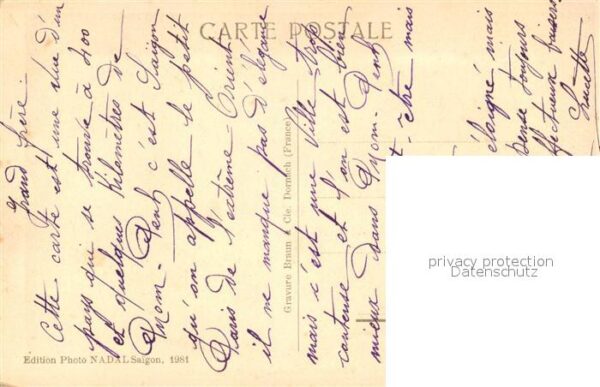 CARTE POSTALE
grand frère.
Cette carte est une vue d'un
pays qui se trouve à 400
et quelques Kilomètres de
Pnom-Penh c'est Saïgon
qu'on appelle le petit
Paris de l'extrême Orient
il ne manque pas d'élégance
mais c'est une Ville très
et l'on est bien
mieux dans Pnom-Penh
être mais
éloigné mais
pense toujours
affectueux baisers
Lucette
Gravure Braun & Cie. Dornach (France)
Edition Photo NADAL Saïgon, 1981
privacy protection
Datenschutz